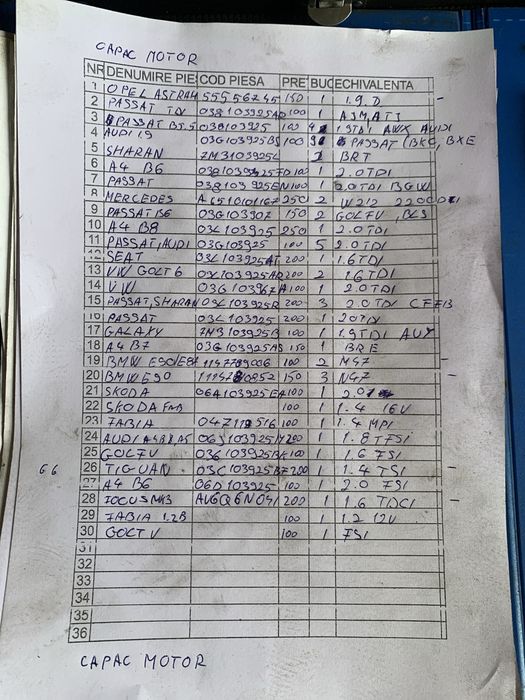 CAPAC MOTOR
NR DENUMIRE PIE COD PIESA PRE BUC ECHIVALENTA
1 OPEL ASTRAH 55556245 150 1 1.9.D
2 PASSAT TDI 038103925 100 1 ASMATI
3 PASSAT B5.5 038103925 100 1.9TDI AWX AUDI
4 AUDI 1.9 03G103925BS 100 PASSAT (BKC, BXE
5 SHARAN 7M3103925 1 BRT
6 A4 B6 038103925FD 10 1 2.0TDI
7 PASSAT 038103925EN 100 1 2.0TDI BGW
8 MERCEDES A6510101167 250 2 W212 2200
9 PASSAT B6 03G103907 150 2 GOLFV, BLS
10 A4 B8 03L103925 250 1 2.0TDI
11 PASSAT, AUDI 03G103925 100 5 2.0TDI
12 SEAT 03L103925AT 200 1 1.6TDI
13 VW GOLT 6 03L103925AQ 200 2 1.6TDI
14 VW 03G103967A 100 1 2.0TDI
15 PASSAT, SHARAN 03L103925R 200 3 2.0TDI CFFB
16 PASSAT 03L103925 200 1 20TDI
17 GALAXY 7M3103925B 100 1 1.9TDI AUY
18 A4 B7 03G103925AS 150 1 BRE
19 BMW E90/E87 11147789006 100 2 M47
20 BMW E90 11147 0852 150 3 N47
21 SKODA 06A103925EA 100 1 2.0
22 SKODA FAB 100 1 1.4 16V
23 FABIA 047 516 100 1 1.4 MPI
24 AUDI 06J103925 200 1 1.8 TFSI
25 GOLFV 03C103925BK 100 1 1.6 FSI
G6 26 TIGUAN 03C103925BF 200 1 1.4 TSI
27 A4 B6 06D103925 100 1 2.0 FSI
28 FOCUS MK3 AV6Q6N041 200 1 1.6 TDCI
29 FABIA 1.2B 100 1 1.2 12V
30 GOLT V 100 1 FSI
31
32
33
34
35
36
CAPAC MOTOR